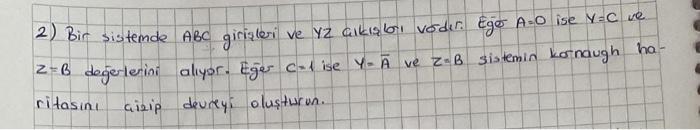 2) Bir sistemde ABC girişleri ve YZ çıkışları vardır. Eğer A=0 ise Y=C ve
Z=B değerlerini alıyor. Eğer C=1 ise Y=A̅ ve Z=B sistemin karnaugh ha-
ritasını çizip devreyi oluşturun.